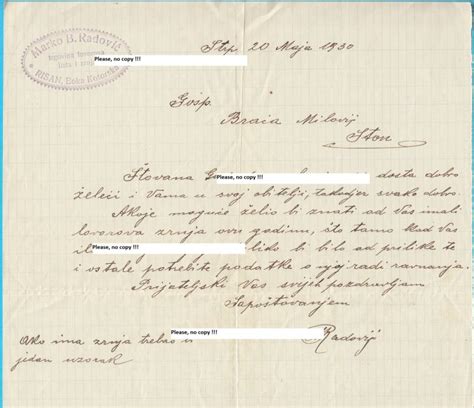 Marko B. Radović
trgovina lovorova
lista i zrnja
RISAN, Boka Kotorska
Strp 20 Maja 1930
Please, no copy !!!
Gosp.
Braća Milović
Ston
Štovana G
Please, no copy !!!
dosta dobro
želeći i Vama u svoj obitelji, takodjer svako dobro.
Ako je moguće želio bi znati od Vas imali
lovorova zrnja ovu godinu, što tamo kod Vas
Please, no copy !!!
liko bi bilo od prilike te
i ostale potrebite podatke o njoj radi ravnanja.
Prijateljski Vas svijeh pozdravljam
Sapoštovanjem
Please, no copy !!!
Radović
Ako ima zrnja trebao
jedan uzorak